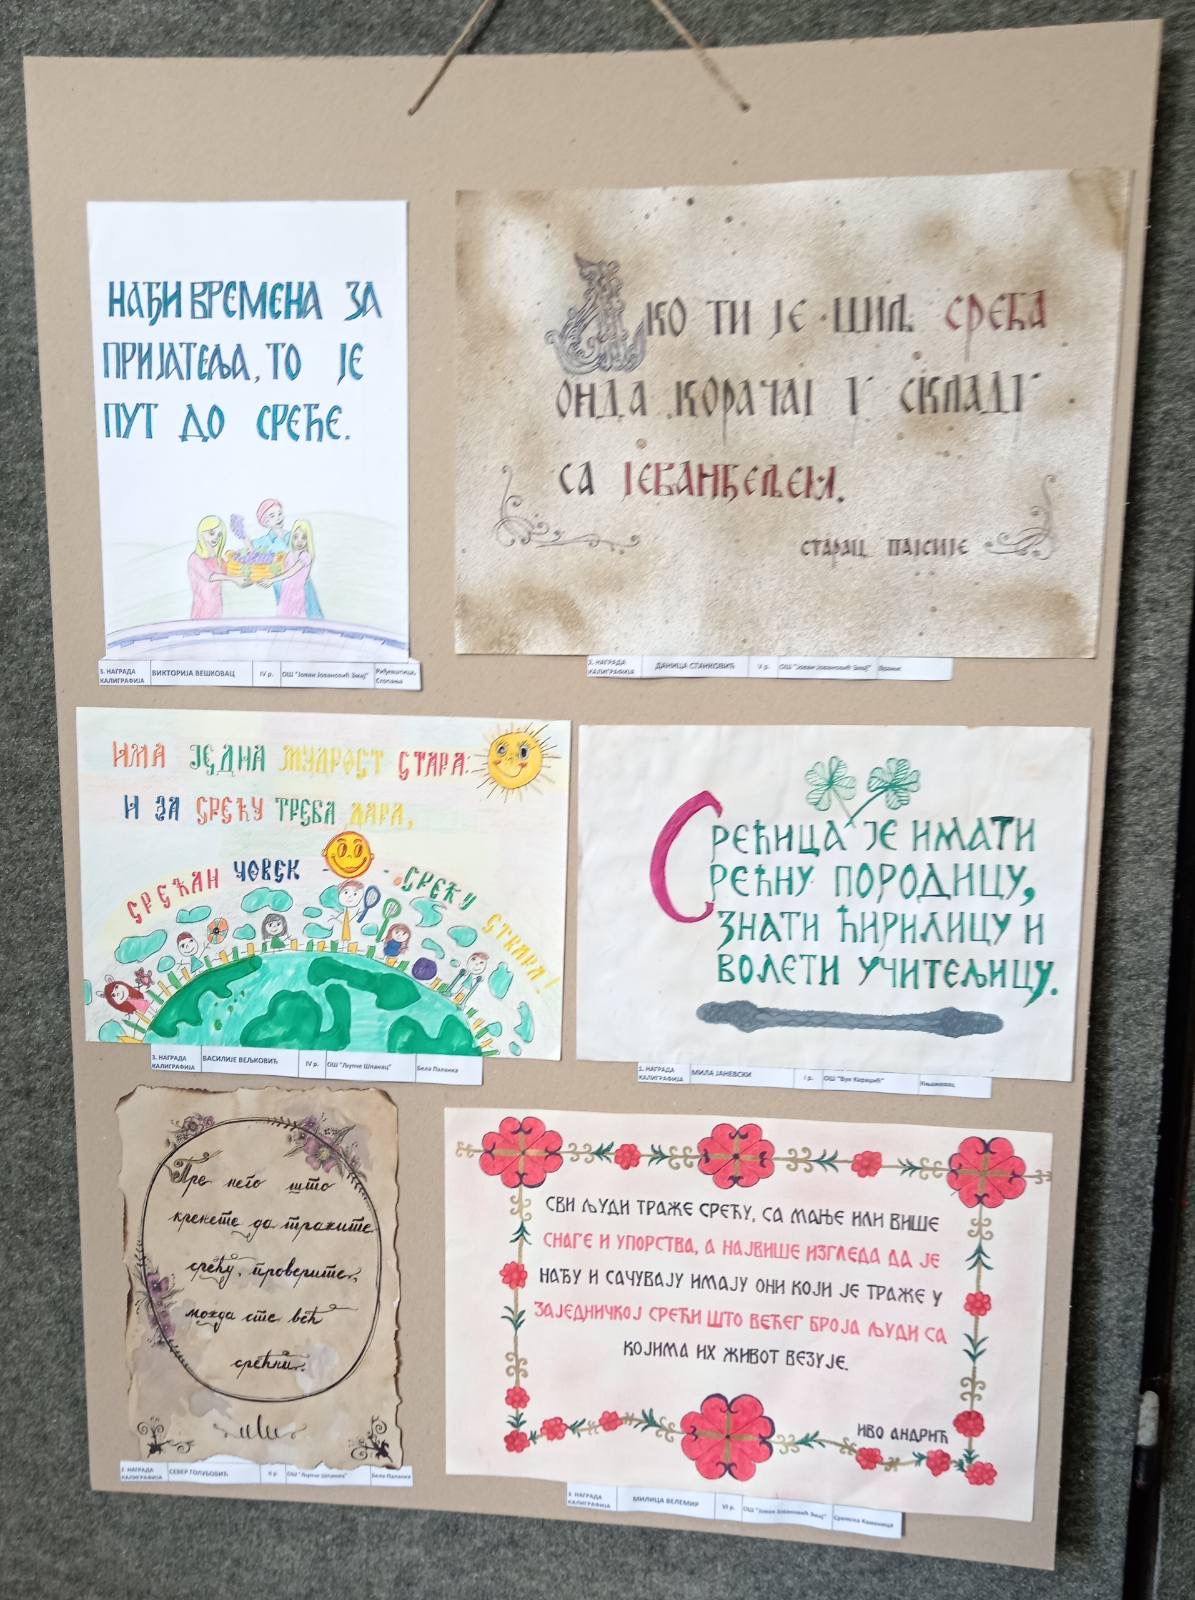 НАЂИ ВРЕМЕНА ЗА
ПРИЈАТЕЉА, ТО ЈЕ
ПУТ ДО СРЕЋЕ.
3. НАГРАДА
КАЛИГРАФИЈА
ВИКТОРИЈА ВЕШКОВАЦ
IV р.
ОШ "Јован Јовановић Змај"
АКО ТИ ЈЕ ЦИЉ СРЕЋА
ОНДА КОРАЧАЈ У СКЛАДУ
СА ЈЕВАНЂЕЉЕМ.
СТАРАЦ ПАЈСИЈЕ
НАГРАДА
КАЛИГРАФИЈА
ДАНИЦА СТАНКОВИЋ
V р.
ОШ "Јован Јовановић Змај"
Врање
ИМА ЈЕДНА МУДРОСТ СТАРА:
И ЗА СРЕЋУ ТРЕБА ДАРА,
СРЕЋАН ЧОВЕК СРЕЋУ СТВАРА!
3. НАГРАДА
КАЛИГРАФИЈА
ВАСИЛИЈЕ ВЕЉКОВИЋ
IV р.
ОШ "Љупче Шпанац"
Бела Паланка
СРЕЋИЦА ЈЕ ИМАТИ
СРЕЋНУ ПОРОДИЦУ,
ЗНАТИ ЋИРИЛИЦУ И
ВОЛЕТИ УЧИТЕЉИЦУ.
НАГРАДА
КАЛИГРАФИЈА
МИЛА ЈАНЕВСКИ
I р.
ОШ "Вук Караџић"
Књажевац
Пре него што
кренете да тражите
срећу, проверите,
можда сте већ
срећни.
НАГРАДА
КАЛИГРАФИЈА
СЕВЕР ГОЛУБОВИЋ
ОШ "Љупче Шпанац"
Бела Паланка
СВИ ЉУДИ ТРАЖЕ СРЕЋУ, СА МАЊЕ ИЛИ ВИШЕ
СНАГЕ И УПОРСТВА, А НАЈВИШЕ ИЗГЛЕДА ДА ЈЕ
НАЂУ И САЧУВАЈУ ИМАЈУ ОНИ КОЈИ ЈЕ ТРАЖЕ У
ЗАЈЕДНИЧКОЈ СРЕЋИ ШТО ВЕЋЕГ БРОЈА ЉУДИ СА
КОЈИМА ИХ ЖИВОТ ВЕЗУЈЕ.
ИВО АНДРИЋ
НАГРАДА
КАЛИГРАФИЈА
МИЛИЦА ВЕЛЕМИР
VI р.
ОШ "Јован Јовановић Змај"
Сремска Каменица